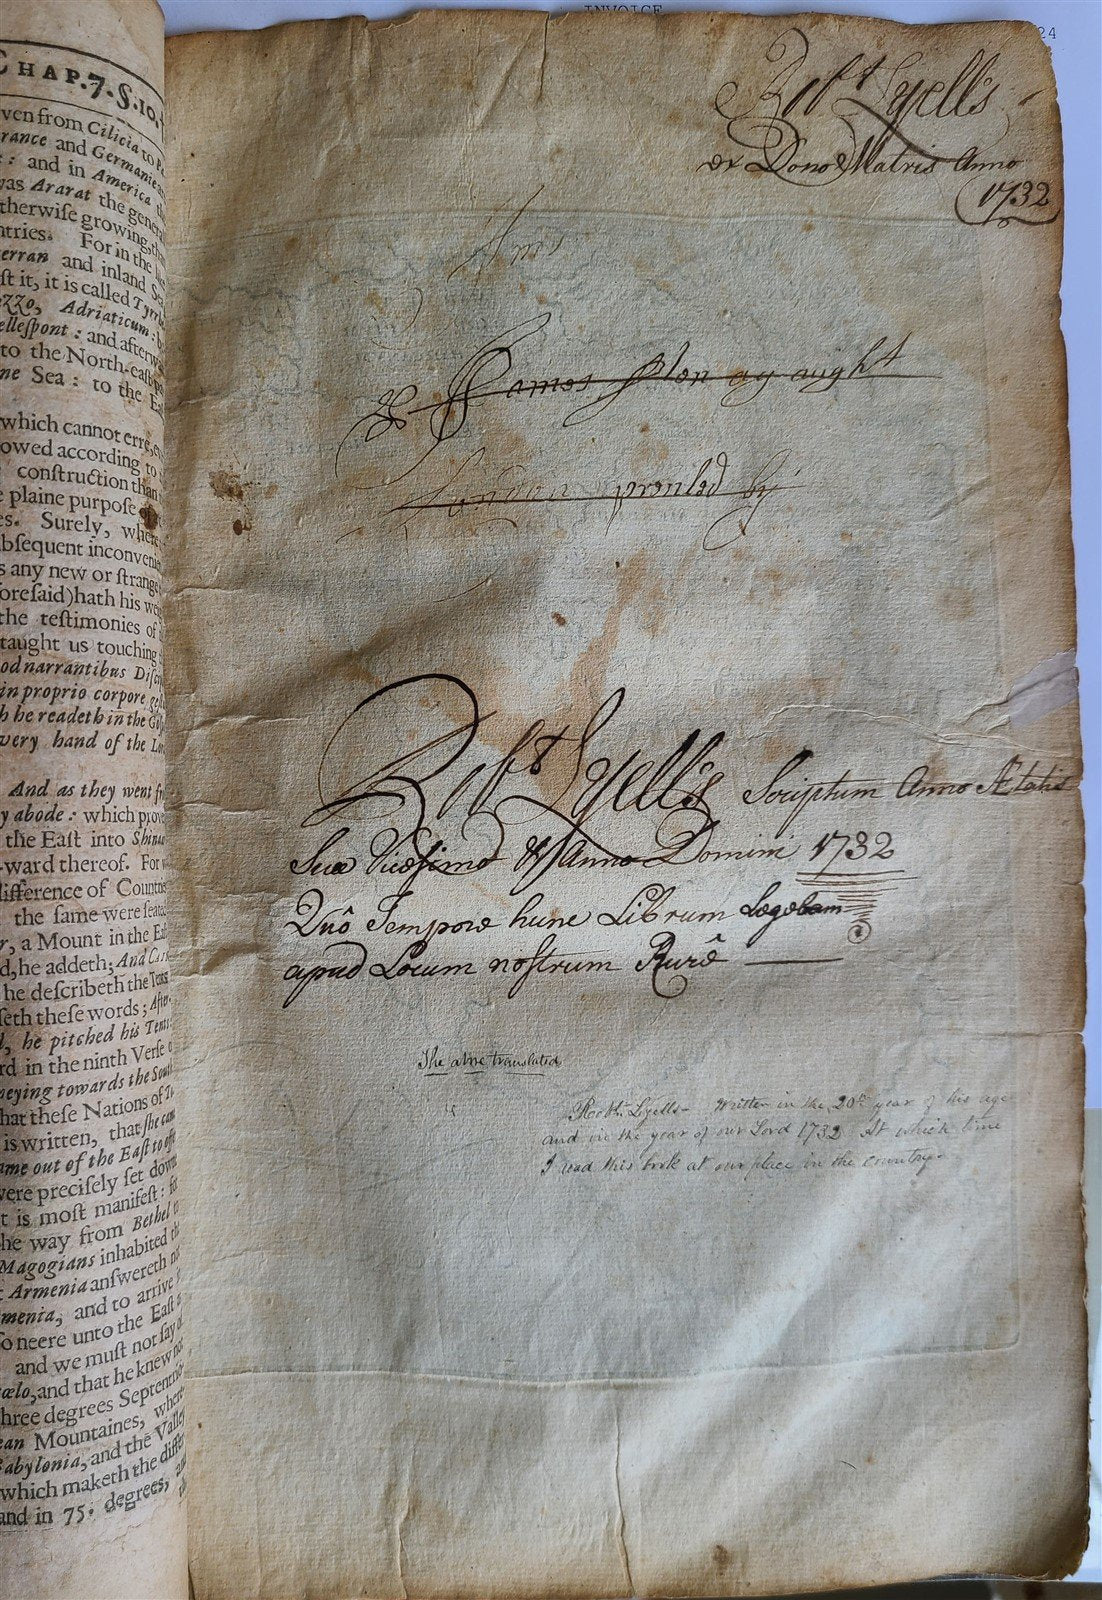 INVOICE
24
CHAP.7.§.10.
ven from Cilicia to
rance and Germanie
: and in America
as Ararat the general
therwiſe growing,
ntries. For in the
erran and inland Sea
ſt it, it is called
ozzo, Adriaticum:
elleſpont: and after
to the North-eaſt
ne Sea: to the
which cannot erre,
owed according to
conſtruction than
e plaine purpoſe
es. Surely, where
bſequent inconveni
s any new or ſtrange
oreſaid) hath his
the teſtimonies of
taught us touching
od narrantibus
in proprio corpore
h he readeth in the
very hand of the
And as they went
y abode: which
the East into
-ward thereof. For
difference of
the ſame were
r, a Mount in the
d, he addeth; And
he deſcribeth the
ſeth theſe words;
l, he pitched his Tents
rd in the ninth Verſe
neying towards the South
hat theſe Nations of
is written, that ſhe came
ame out of the Eaſt to
were preciſely ſet down
t is moſt manifeſt:
he way from Bethel
Magogians inhabited
t Armenia anſwereth
menia, and to arrive
ſo neere unto the Eaſt
and we muſt not ſay
cælo, and that he knew
hree degrees
ean Mountaines,
abylonia, and the Valley
which maketh the
and in 75. degrees,
Robt Lyell's
ex Dono Matris Anno
1732
Ams
& James
London prented by
Robt Lyell's Scriptum Anno Ætatis
Suæ Vicesimo & Anno Domini 1732
Quô Tempore hunc Librum Legebam
apud Locum nostrum Rurê
The above translated
Robt. Lyells - Written in the 20th year of his age
and in the year of our Lord 1732 At which time
I read this book at our place in the country.